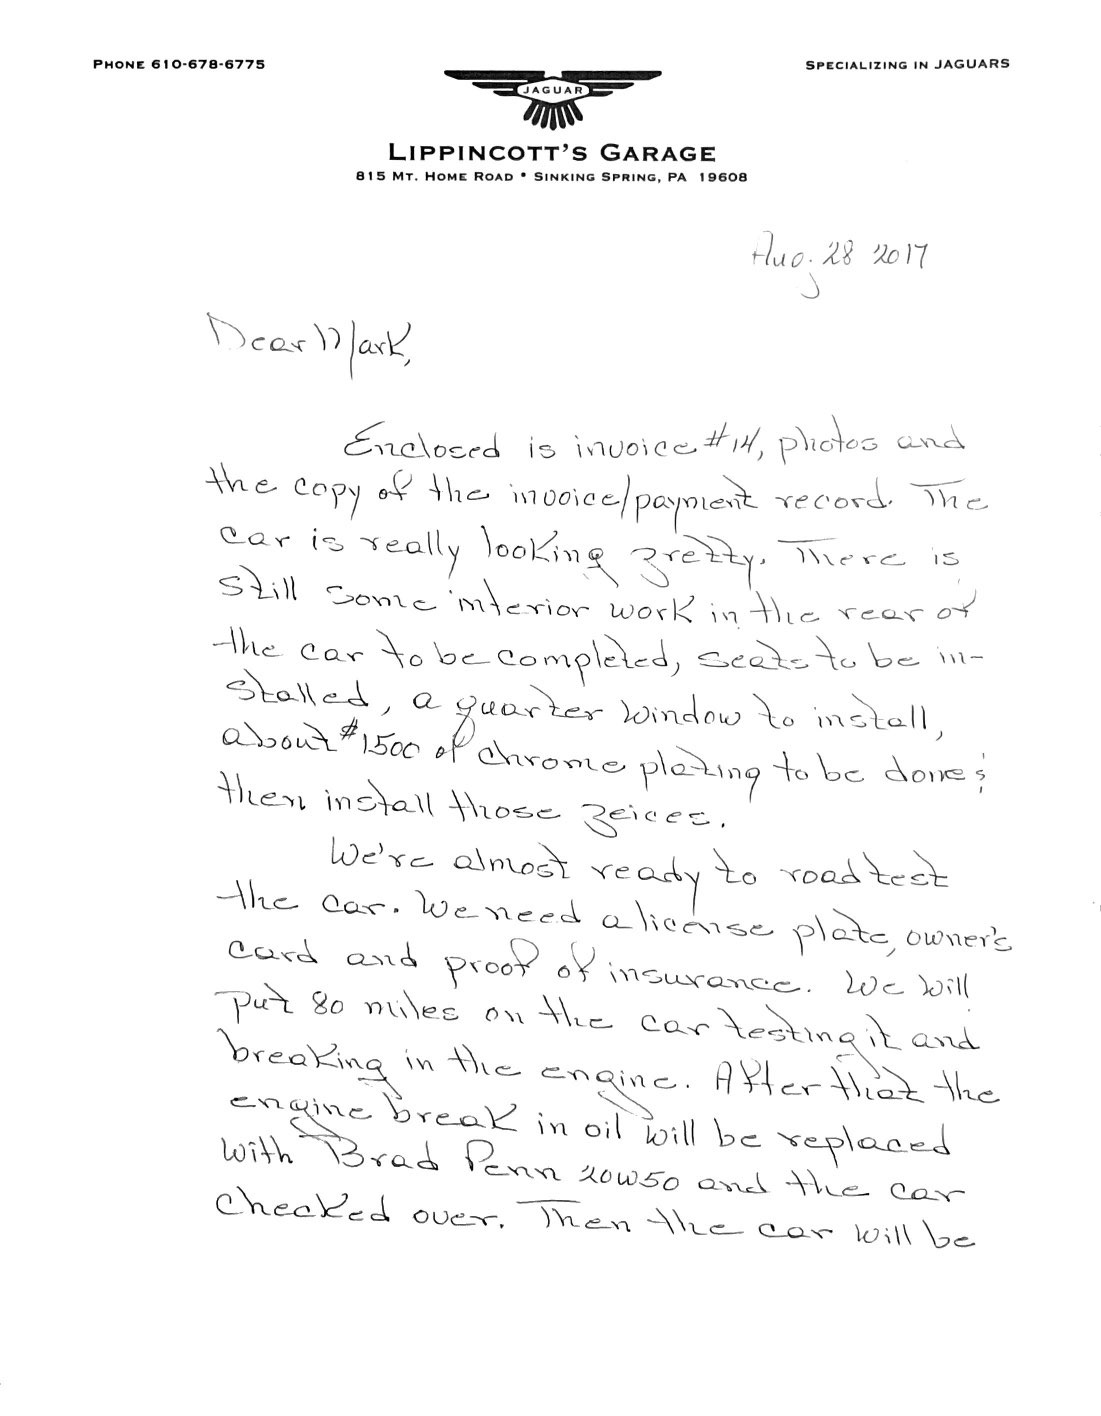 PHONE 610-678-6775
SPECIALIZING IN JAGUARS
JAGUAR
LIPPINCOTT'S GARAGE
815 MT. HOME ROAD • SINKING SPRING, PA 19608
Aug. 28 2017
Dear Mark,
Enclosed is invoice #14, photos and
the copy of the invoice/payment record. The
car is really looking pretty. There is
still some interior work in the rear of
the car to be completed, seats to be in-
stalled, a quarter window to install,
about $1500 of chrome plating to be done;
then install those peices.
We're almost ready to road test
the car. We need a license plate, owner's
card and proof of insurance. We will
put 80 miles on the car testing it and
breaking in the engine. After that the
engine break in oil will be replaced
with Brad Penn 20W50 and the car
checked over. Then the car will be